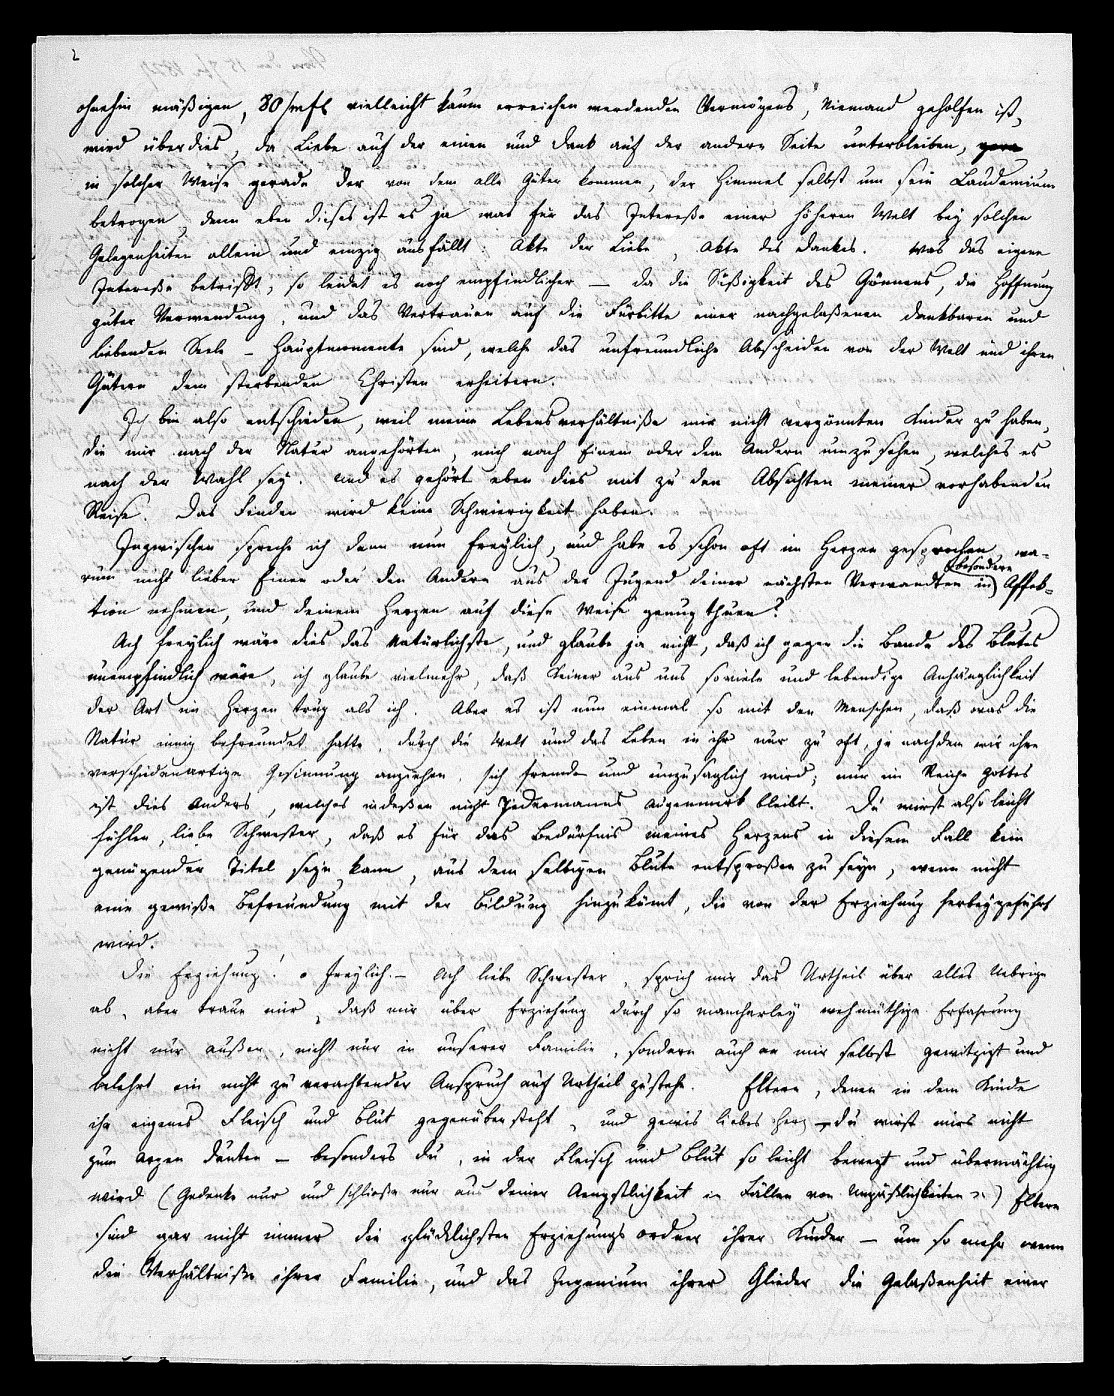 2
ohnehin mäßigen, 80/mfl vielleicht kaum erreichen werdenden Vermögens, Niemand geholfen ist,
wird überdies, da Liebe auf der einen und Dank auf der andern Seite unterbleiben,
in solcher Weise gerade der von dem alle Güter kommen, der Himmel selbst um sein Laudemium
betrogen, denn eben dieses ist es ja was für das Intereße einer höheren Welt bey solchen
Gelegenheiten allein und einzig ausfällt: Akte der Liebe, Akte des Dankes. Was das eigene
Intereße betrifft, so leidet es noch empfindlicher – da die Süßigkeit des Gönnens, die Hoffnung
guter Verwendung, und das Vertrauen auf die Fürbitte einer nachgelaßenen dankbaren und
liebenden Seele – Hauptmomente sind, welche das unfreundliche Abscheiden von der Welt und ihren
Gütern dem sterbenden Christen erheitern.
Ich bin also entschieden, weil meine Lebensverhältniße mir nicht vergönnten Kinder zu haben,
die mir nach der Natur angehörten, mich nach Einem oder dem Andern umzusehen, welches es
nach der Wahl sey. und es gehört eben dies mit zu den Absichten meiner vorhabenden
Reise. Das Finden wird keine Schwierigkeit haben.
Inzwischen spreche ich denn nun freylich, und habe es schon oft im Herzen gesprochen, wa-
rum nicht lieber Einen oder den Andern aus der Jugend deiner nächsten Verwandten in besondere Affek-
tion nehmen, und deinem Herzen auf diese Weise genug thuen?
Ach freylich wäre dies das Natürlichste, und glaube ja nicht, daß ich gegen die Bande des Blutes
unempfindlich wäre, ich glaube vielmehr, daß Keiner aus uns soviele und lebendige Anhänglichkeit
der Art im Herzen trug als ich. Aber es ist nun einmal so mit den Menschen, daß was die
Natur innig befreundet hatte, durch die Welt und das Leben in ihr nur zu oft, je nachdem wir ihre
verschiedenartige Gesinnung anziehen, sich fremde und unzusäglich wird; nur im Reiche Gottes
ist dies Anders, welches indeßen nicht Jedermanns Augenmerk bleibt. Du wirst also leicht
fühlen, liebe Schwester, daß es für das Bedürfnis meines Herzens in diesem Fall kein
genügender Titel seyn kann, aus dem selbigen Blute entsproßen zu seyn, wenn nicht
eine gewiße Befreundung mit der Bildung hinzukömt, die von der Erziehung herbeygeführt
wird.
Die Erziehung! o freylich. – Ach liebe Schwester, sprich mir das Urtheil über alles Uebrige
ab, aber traue mir, daß mir über Erziehung durch so mancherley wehmüthige Erfahrung
nicht nur außer, nicht nur in unserer Familie, sondern auch an mir selbst gewitzigt und
belehrt ein nicht zu verachtender Anspruch auf Urtheil zustehe. Eltern, denen in dem Kinde
ihr eigenes Fleisch und Blut gegenübersteht, und gewis liebes Herz – du wirst mirs nicht
zum Argen deuten – besonders du, in der Fleisch und Blut so leicht bewegt und übermächtig
wird (Gedenke nur und schließe nur aus deiner Aengstlichkeit in Fällen von Unpäßlichkeiten) Eltern
sind gar nicht immer die glücklichsten Erziehungsordner ihrer Kinder – um so mehr wenn
die Verhältniße ihrer Familie, und das Ingenium ihrer Glieder die Gelaßenheit einer